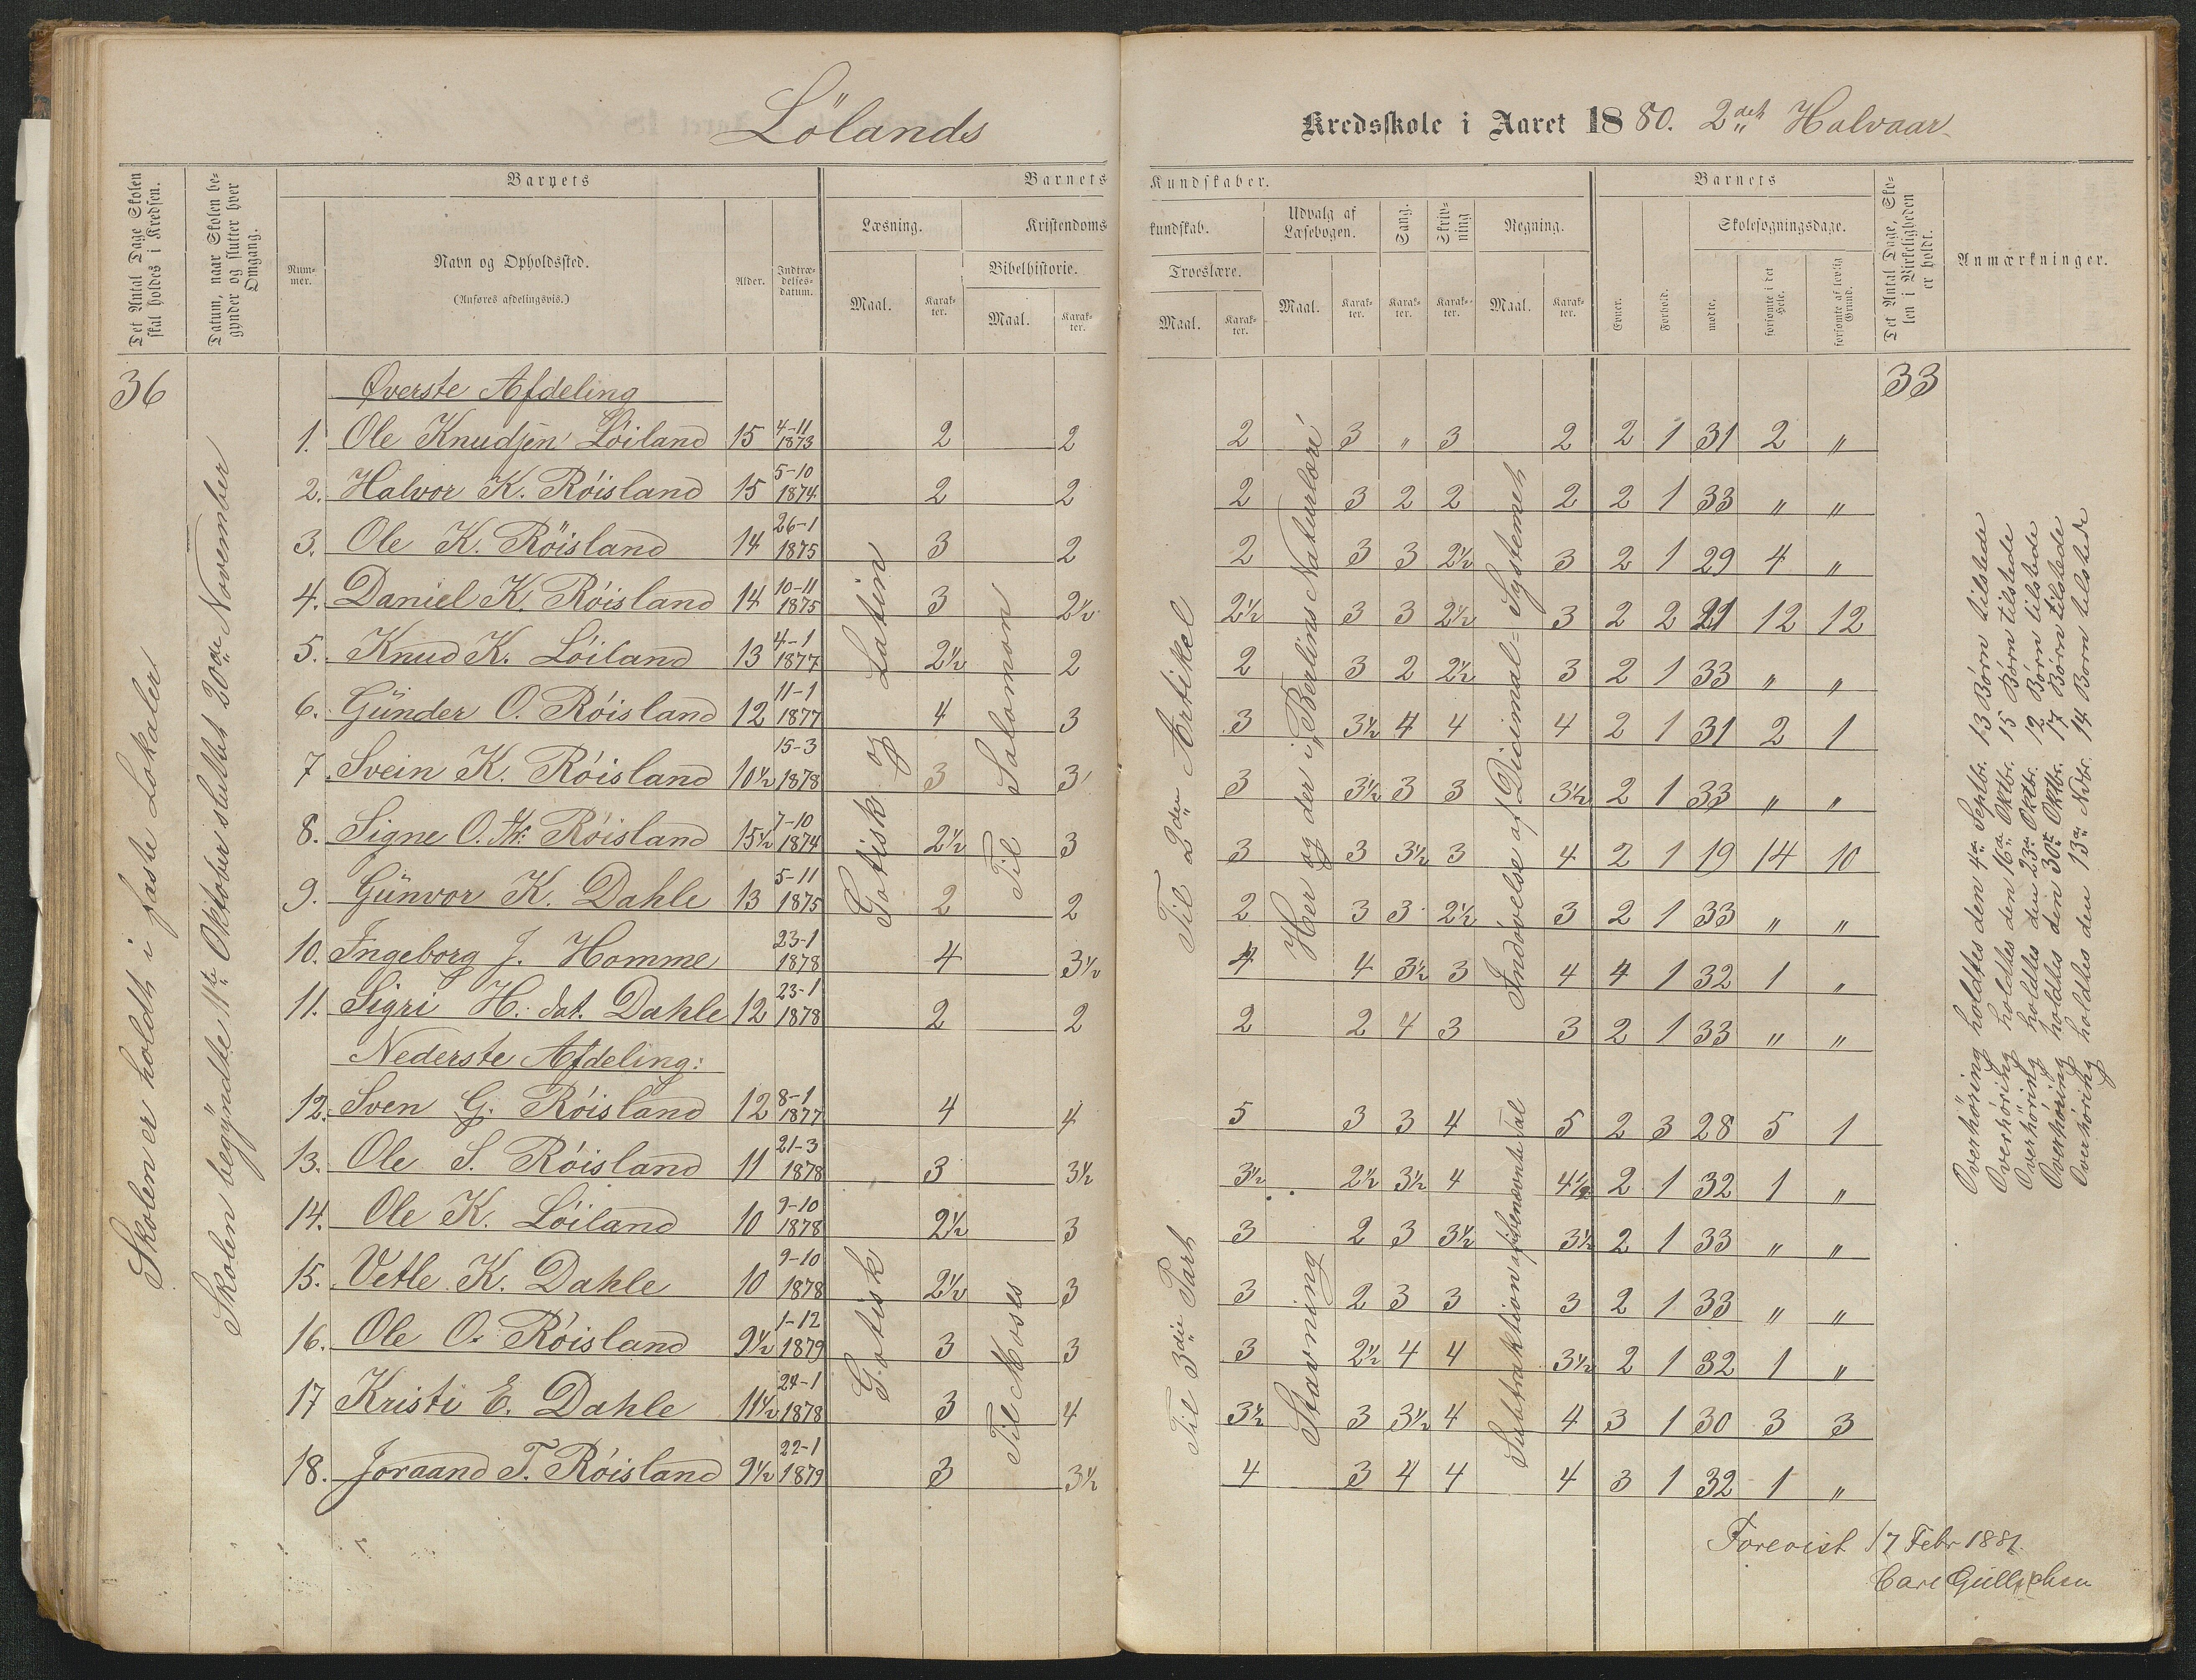 Lölands Kredsskole i Aaret 1880. 2det Halvaar
Det Antal Dage Skolen skal holdes i Kredsen.
Datum, naar Skolen begynder og slutter hver Omgang.
Barnets
Barnets Kundskaber.
Barnets
Det Antal Dage, Skolen i Virkeligheden er holdt.
Anmærkninger.
Nummer.
Navn og Opholdssted.
(Anføres afdelingsvis.)
Alder.
Indtrædelsesdatum.
Læsning.
Kristendomskundskab.
Udvalg af Læsebogen.
Sang.
Skrivning
Regning.
Evner.
Forhold.
Skolesøgningsdage.
Bibelhistorie.
Troeslære.
Maal. Karakter. Maal. Karakter. Maal. Karakter. Maal. Karakter. Karakter. Karakter. Maal. Karakter.
mødte. forsømte i det Hele. forsømte af lovlig Grund.
36
33
Skolen er holdt i faste Lokaler
Skolen begÿndte 11te Oktober sluttet 20de November
Øverste Afdeling
1. Ole Knudsen Löiland 15 4-11 1873 2 2 2 3 " 3 2 2 1 31 2 "
2. Halvor K. Röisland 15 5-10 1874 2 2 2 3 2 2 2 2 1 33 " "
3. Ole K. Röisland 14 26-1 1875 3 2 2 3 3 2½ 3 2 1 29 4 "
4. Daniel K. Röisland 14 10-11 1875 3 2½ 2½ 3 3 2½ 3 2 2 21 12 12
5. Knud K. Löiland 13 4-1 1877 2½ 2 2 3 2 2½ 3 2 1 33 " "
6. Günder O. Röisland 12 11-1 1877 4 3 3 3½ 4 4 4 2 1 31 2 1
7. Svein K. Röisland 10½ 15-3 1878 3 3 3 3½ 3 3 3½ 2 1 33 " "
8. Signe O. Röisland 15½ 7-10 1874 2½ 3 3 3 3½ 3 4 2 1 19 14 10
9. Günvor K. Dahle 13 5-11 1875 2 2 2 3 3 2½ 3 2 1 33 " "
10. Ingeborg J. Homme 23-1 1878 4 3½ 4 4 3½ 3 4 4 1 32 1 "
11. Sigri H. dat. Dahle 12 23-1 1878 2 2 2 2 4 3 3 2 1 33 " "
Gotisk og Latin
Til Salomon
Til 2den Artikel
Her og der i „Berlins Naturlære"
Indøvelse af Dicimal-Systemet
Nederste Afdeling:
12. Sven G. Röisland 12 8-1 1877 4 4 5 3 3 4 5 2 3 28 5 1
13. Ole S. Röisland 11 21-3 1878 3 3½ 3½ 2½ 3½ 4 4½ 2 1 32 1 "
14. Ole K. Löiland 10 9-10 1878 2½ 3 3 2 3 3½ 3½ 2 1 33 " "
15. Vetle K. Dahle 10 9-10 1878 2½ 3 3 2 3 3 3 2 1 33 " "
16. Ole O. Röisland 9½ 1-12 1879 3 3 3 2½ 4 4 3½ 2 1 32 1 "
17 Kristi E. Dahle 11½ 24-1 1878 3 4 3½ 3 3½ 4 4 3 1 30 3 3
18. Joraand T. Röisland 9½ 22-1 1879 3 3½ 4 3 4 4 4 3 1 32 1 "
Gotisk
Til Moses
Til 3die Part
Stavning
Subtraktion af ubenævnte Tal
Overhöring holdtes den 4de Septbr. 13 Börn tilstede
Overhöring holdtes den 16de Oktbr. 15 Börn tilstede
Overhöring holdtes den 23de Oktbr. 12 Börn tilstede
Overhöring holdtes den 30te Oktbr. 17 Börn tilstede
Overhöring holdtes den 13de Nvbr. 14 Born tilstede
Forevist 17 Febr 1881.
Carl